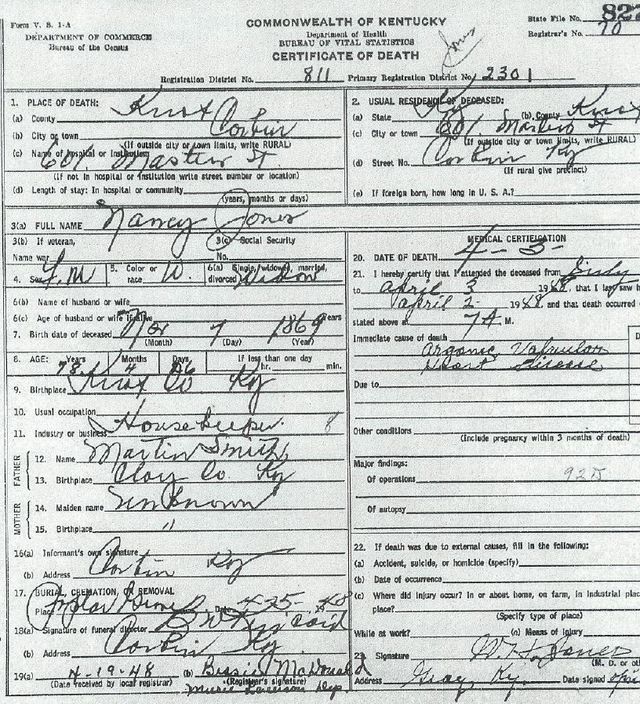 Form V. S. 1-A
DEPARTMENT OF COMMERCE
Bureau of the Census
COMMONWEALTH OF KENTUCKY
Department of Health
BUREAU OF VITAL STATISTICS
CERTIFICATE OF DEATH
Jones
State File No. 827
Registrar's No. 70
Registration District No. 811 Primary Registration District No. 2301
1. PLACE OF DEATH:
(a) County Knox
(b) City or town Corbin
(If outside city or town limits, write RURAL)
(c) Name of hospital or institution
601 Master St
(If not in hospital or institution write street number or location)
(d) Length of stay: In hospital or community
(years, months or days)
2. USUAL RESIDENCE OF DECEASED:
(a) State Ky (b) County Knox
(c) City or town 601 St
(If outside city or town limits, write RURAL)
(d) Street No. Corbin Ky
(If rural give precinct)
(e) If foreign born, how long in U. S. A.?
3(a) FULL NAME Nancy Jones
3(b) If veteran,
Name war
3(c) Social Security
No.
4. Sex F. M 5. Color or race W. 6(a) Single, widowed, married, divorced Widow
6(b) Name of husband or wife
6(c) Age of husband or wife if alive years
7. Birth date of deceased Nov 7 1869
(Month) (Day) (Year)
8. AGE: Years Months Days If less than one day
78 4 26 hr. min.
9. Birthplace Knox Co Ky
10. Usual occupation Housekeeper
11. Industry or business 8
FATHER
12. Name Martin Smith
13. Birthplace Clay Co. Ky
MOTHER
14. Maiden name Unknown
15. Birthplace "
16(a) Informant's own signature
(b) Address Corbin Ky
17. BURIAL, CREMATION, OR REMOVAL
Place Poplar Grove Date 4-5-48
18(a) Signature of funeral director
(b) Address Corbin Ky
19(a) 4-19-48 (b) Bessie McDonald
(Date received by local registrar) (Registrar's signature)
Dep.
MEDICAL CERTIFICATION
20. DATE OF DEATH 4-3-
21. I hereby certify that I attended the deceased from
to April 3 1948, that I last saw h
April 2- 1948 and that death occurred
stated above at 7 A. M.
Immediate cause of death
Organic Valvular
Heart Disease
Due to
Other conditions
(Include pregnancy within 3 months of death)
Major findings:
Of operations 92B
Of autopsy
22. If death was due to external causes, fill in the following:
(a) Accident, suicide, or homicide (specify)
(b) Date of occurrence
(c) Where did injury occur? In or about home, on farm, in industrial place
place?
(Specify type of place)
While at work? (e) Means of injury
23. Signature W. H. Jones
(M. D. or oth
Address Gray, Ky. Date signed